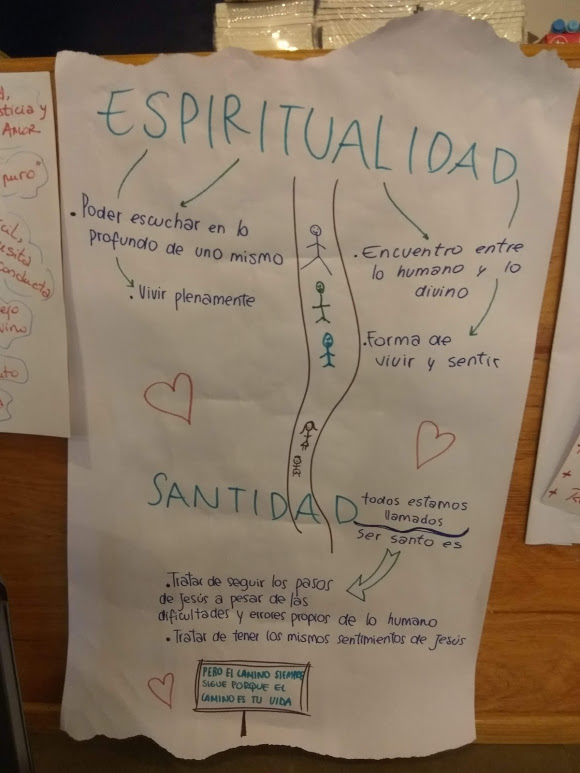 ESPIRITUALIDAD
. Poder escuchar en lo
profundo de uno mismo
. Vivir plenamente
. Encuentro entre
lo humano y lo
divino
. Forma de
vivir y sentir
SANTIDAD
todos estamos
llamados
ser santo es
. Tratar de seguir los pasos
de Jesús a pesar de las
dificultades y errores propios de lo humano
. Tratar de tener los mismos sentimientos de Jesús
PERO EL CAMINO SIEMPRE
SIGUE PORQUE EL
CAMINO ES TU VIDA
sticia y
AMOR
puro"
conducta